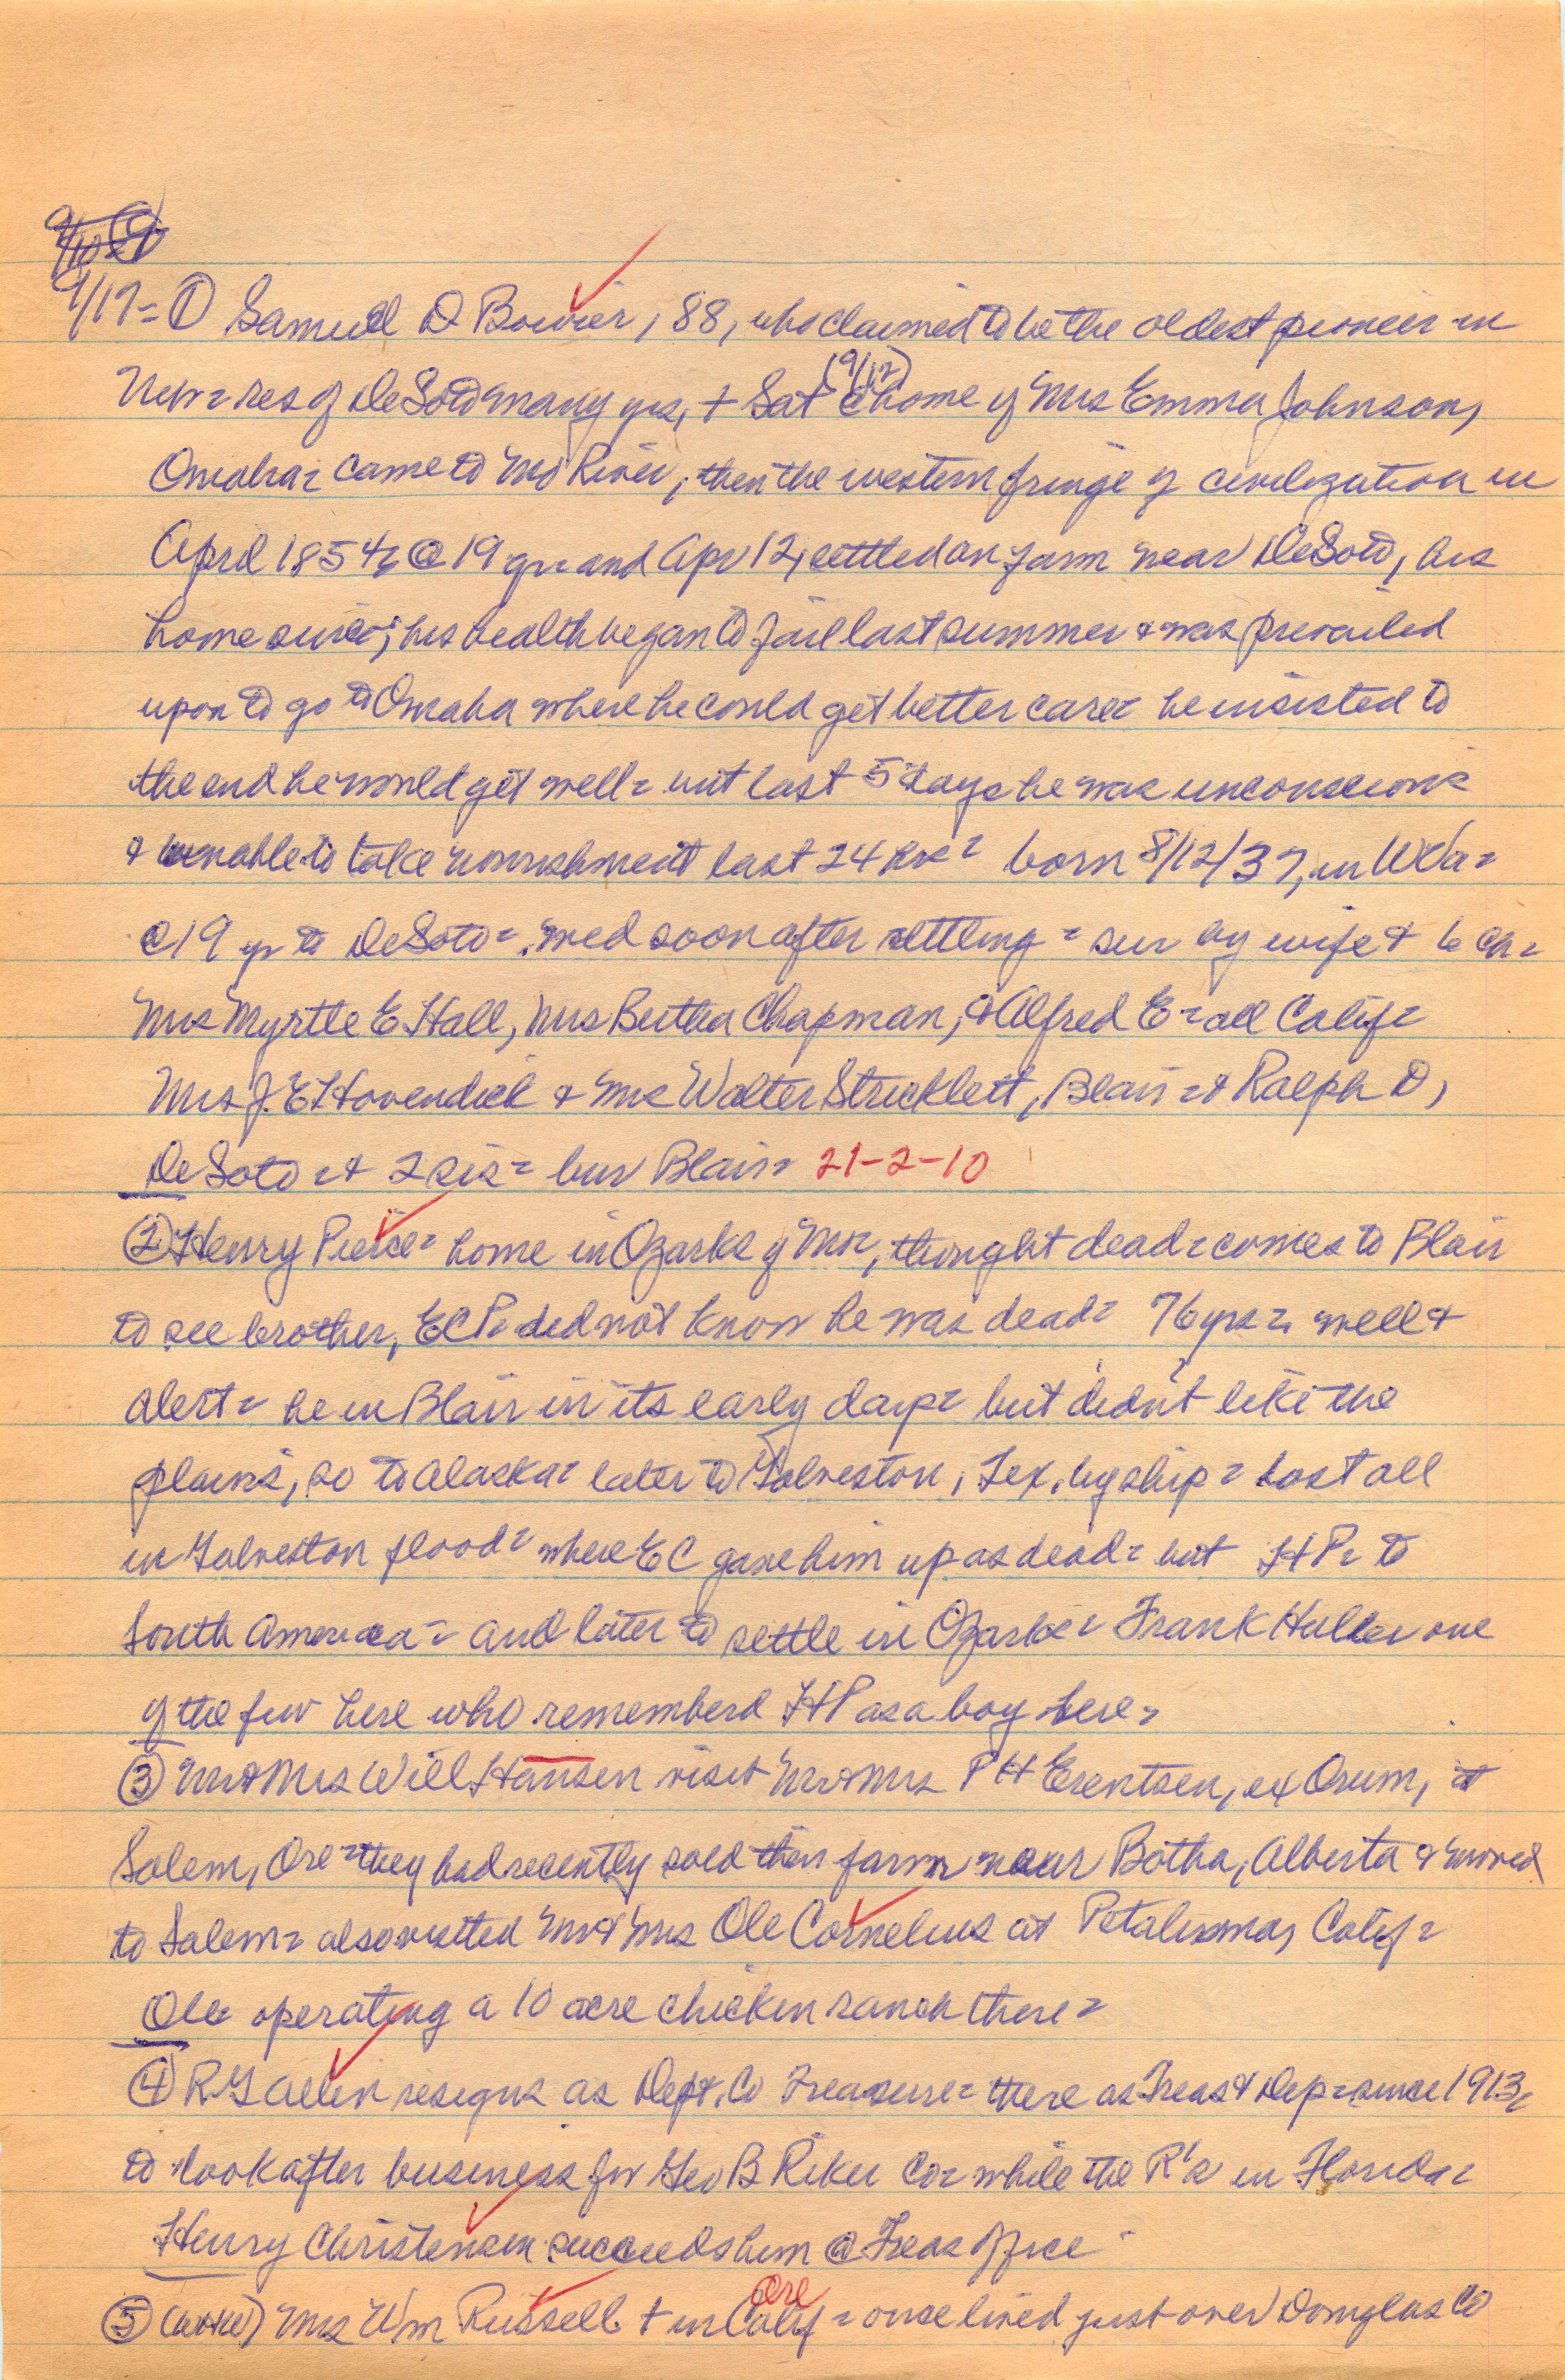 9/17= ① Samuel D Bowier, 88, who claimed to be the oldest pioneer in
Neb= res of DeSoto many yrs, + Sat (9/12) @ home of Mrs Emma Johnson,
Omaha= came to Mo River, then the western fringe of civilization in
April 1854= @ 19 yr= and Apr 12, settled on farm near DeSoto, his
home since; his health began to fail last summer & was prevailed
upon to go to Omaha where he could get better care= he insisted to
the end he would get well= but last 5 days he was unconscious
& unable to take nourishment last 24 hrs= born 8/12/37, in W Va=
@19 yr to DeSoto=, med soon after settling= sur by wife & 6 ch=
Mrs Myrtle E Hall, Mrs Bertha Chapman, & Alfred E= all Calif=
Mrs J. E Hovendick & Mrs Walter Stricklett, Blair=& Ralph D,
DeSoto=& 2 sis= bur Blair= 21-2-10
② Henry Pierce= home in Ozarks of Mo=, thought dead= comes to Blair
to see brother, ECP= did not know he was dead= 76 yrs=, well &
alert= he in Blair in its early days= but didn't like the
plains, so to Alaska= later to Galveston, Tex, by ship= lost all
in Galveston flood= where EC gave him up as dead= but HP= to
South America= and later to settle in Ozarks= Frank Huller one
of the few here who rememberd HP as a boy here=
③ Mr & Mrs Will Hansen visit Mr & Mrs PH Erentsen, ex Orum, at
Salem, Ore= they had recently sold their farm near Botha, Alberta & moved
to Salem= also visited Mr & Mrs Ole Cornelius at Petaluma, Calif=
Ole operating a 10 acre chicken ranch there=
④ RG Allen resigns as Dept. Co Treasure= there as Treas & Dep= since 1913=
to look after business for Geo B Riker Co= while the R's in Florida=
Henry Christensen succeeds him @ Treas office
⑤ Mrs Wm Russell + in Calif Ore= once lived just over Douglas Co